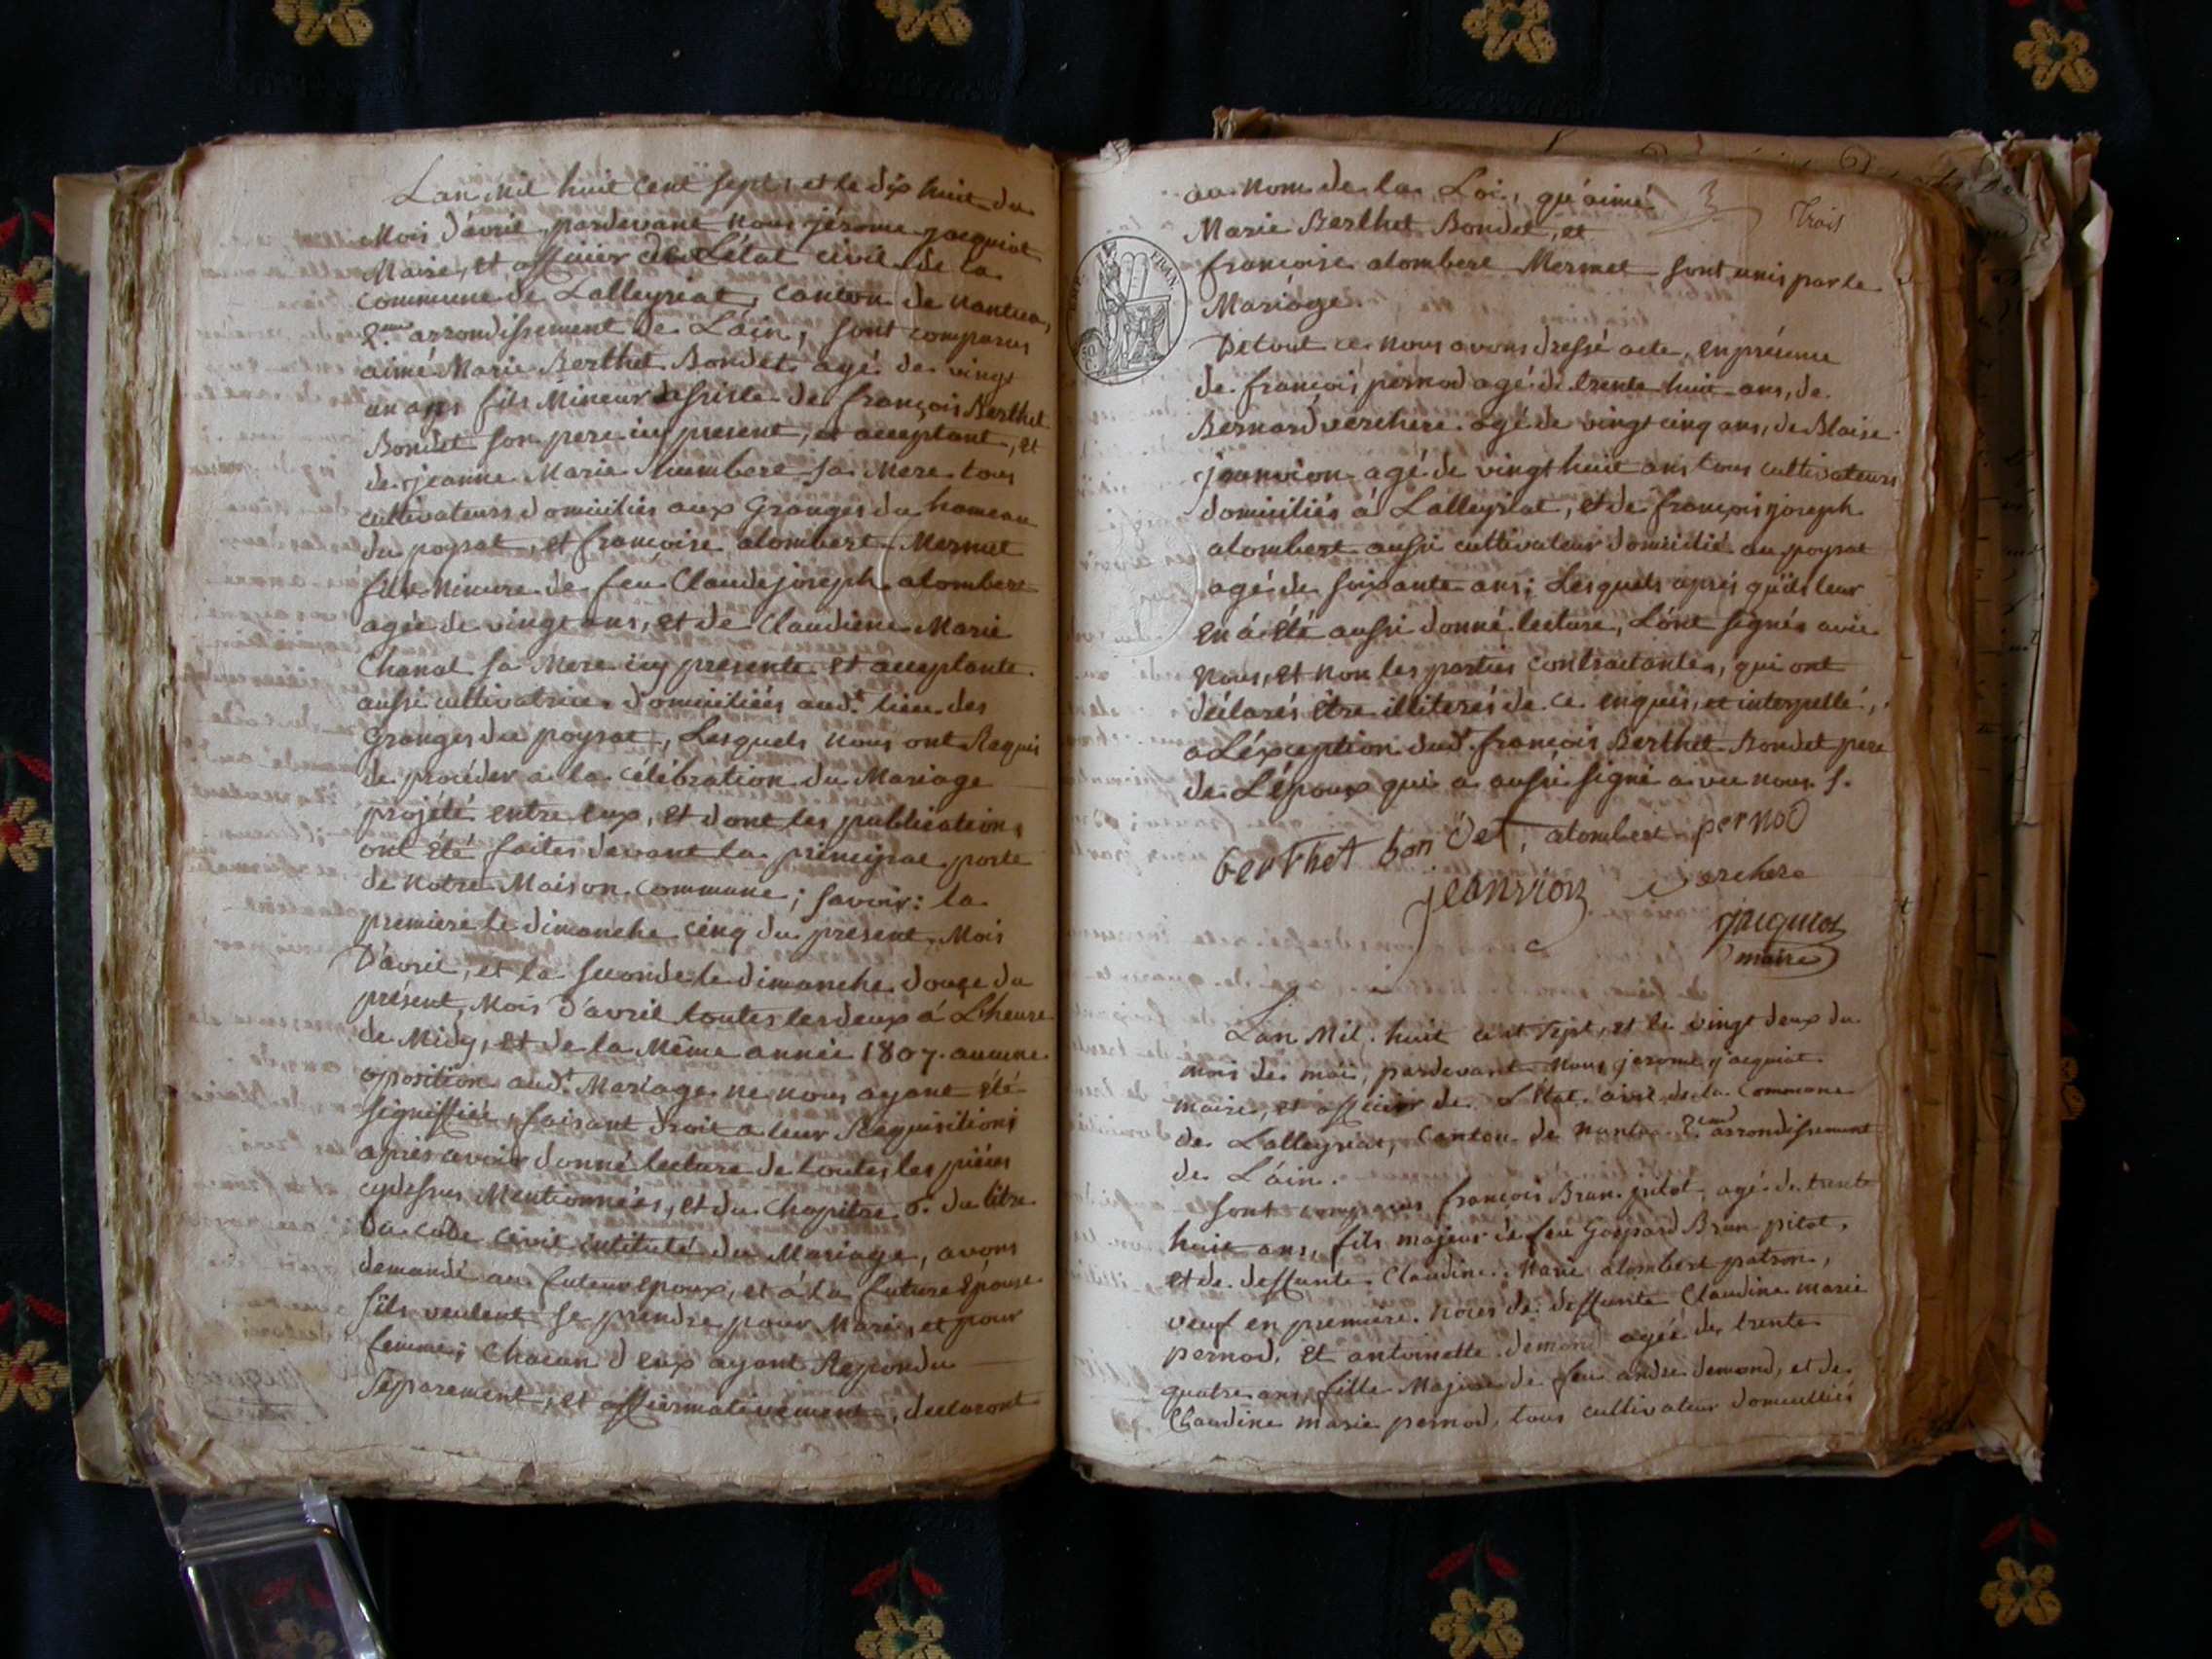 Lan Mil huit Cent Sept, et le dix huit du
Mois d'avril, pardevant nous jérome jacquiot
Maire, et officier de L'état civil de la
commune de Lalleyriat, Canton de Nantua,
2.eme arrondissement de L'ain, sont comparus
aimé Marie Berthet Bondet agé de vingt
un ans fils Mineur de françois Berthet
Bondet son pere icy present, et acceptant, et
de jeanne Marie humbert sa Mere tous
cultivateurs domiciliés aux Granges du hameau
du poysat, et françoise alombert Mermet
fille Mineure de feu Claude joseph alombert
agée de vingt ans, et de Claudine Marie
Chanal sa Mere icy presente et acceptante
aussi cultivatrice domiciliées aud.t lieu des
Granges du poysat, Lesquels nous ont Requis
de procéder a la célébration du Mariage
projété entre eux, et dont les publications
ont été faites devant la principal porte
de notre Maison commune; savoir: la
premiere le dimanche cinq du présent Mois
D'avril, et la seconde le dimanche douze du
présent Mois d'avril toutes les deux á L'heure
de Midy, et de la Même année 1807. aucune
oposition aud.t Mariage ne nous ayant été
signiffiée, faisant droit a leur Requisitions
aprés avoir donné lecture de toutes les piéces
cydessus Mentionnées, et du Chapitre 6. du titre
du code civil intitulé du Mariage, avons
demandé au futeur Epoux, et á la future Epouse
s'ils veulent se prendre pour Mari, et pour
femme; Chacun d'eux ayant Repondu
Séparement, et affirmativement, declaront
au nom de la Loi, qu'aimé
3 Trois
Marie Berthet Bondet, et
françoise alombert Mermet sont unis par le
Mariage.
EMP. FRAN.
50
De tout ce nous avons dressé acte, en présence
de françois pernod agé de trente huit ans, de
Bernard verchere agé de vingt cinq ans, de Blaise
jeanvion agé de vingt huit ans tous cultivateurs
domiciliés á Lalleyriat, et de françois joseph
alombert aussi cultivateur domicilié au poysat
agé de soixante ans; Lesquels aprés qu'ils leur
en á été aussi donné lecture, L'ont signés avec
Nous, et non les parties contractantes, qui ont
déclarés être illiterés de ce enquis, et interpellé,
a L'exception dud.t françois Berthet Bondet pere
de L'époux qui a aussi signé avec nous .
berthet bondet, alombert pernod
jeanvion verchere
jacquiot
maire
Lan Mil huit cent Sept, et le vingt deux du
mois de mai, pardevant Nous jerome jacquiot
maire, et officier de L'état civil de la Commune
de Lalleyriat, Canton de Nantua 2.eme arrondissement
de L'ain.
Sont comparus françois Brun pitot, agé de trente
huit ans, fils majeur de feu Gaspard Brun pitot,
et de deffunte Claudine Marie alombert patron,
veuf en premiere Noces de deffunte Claudine marie
pernod, Et antoinette demond agée de trente
quatre ans, fille Majeure de feu andre demond, et de
Claudine marie pernod, tous cultivateur domicilliés